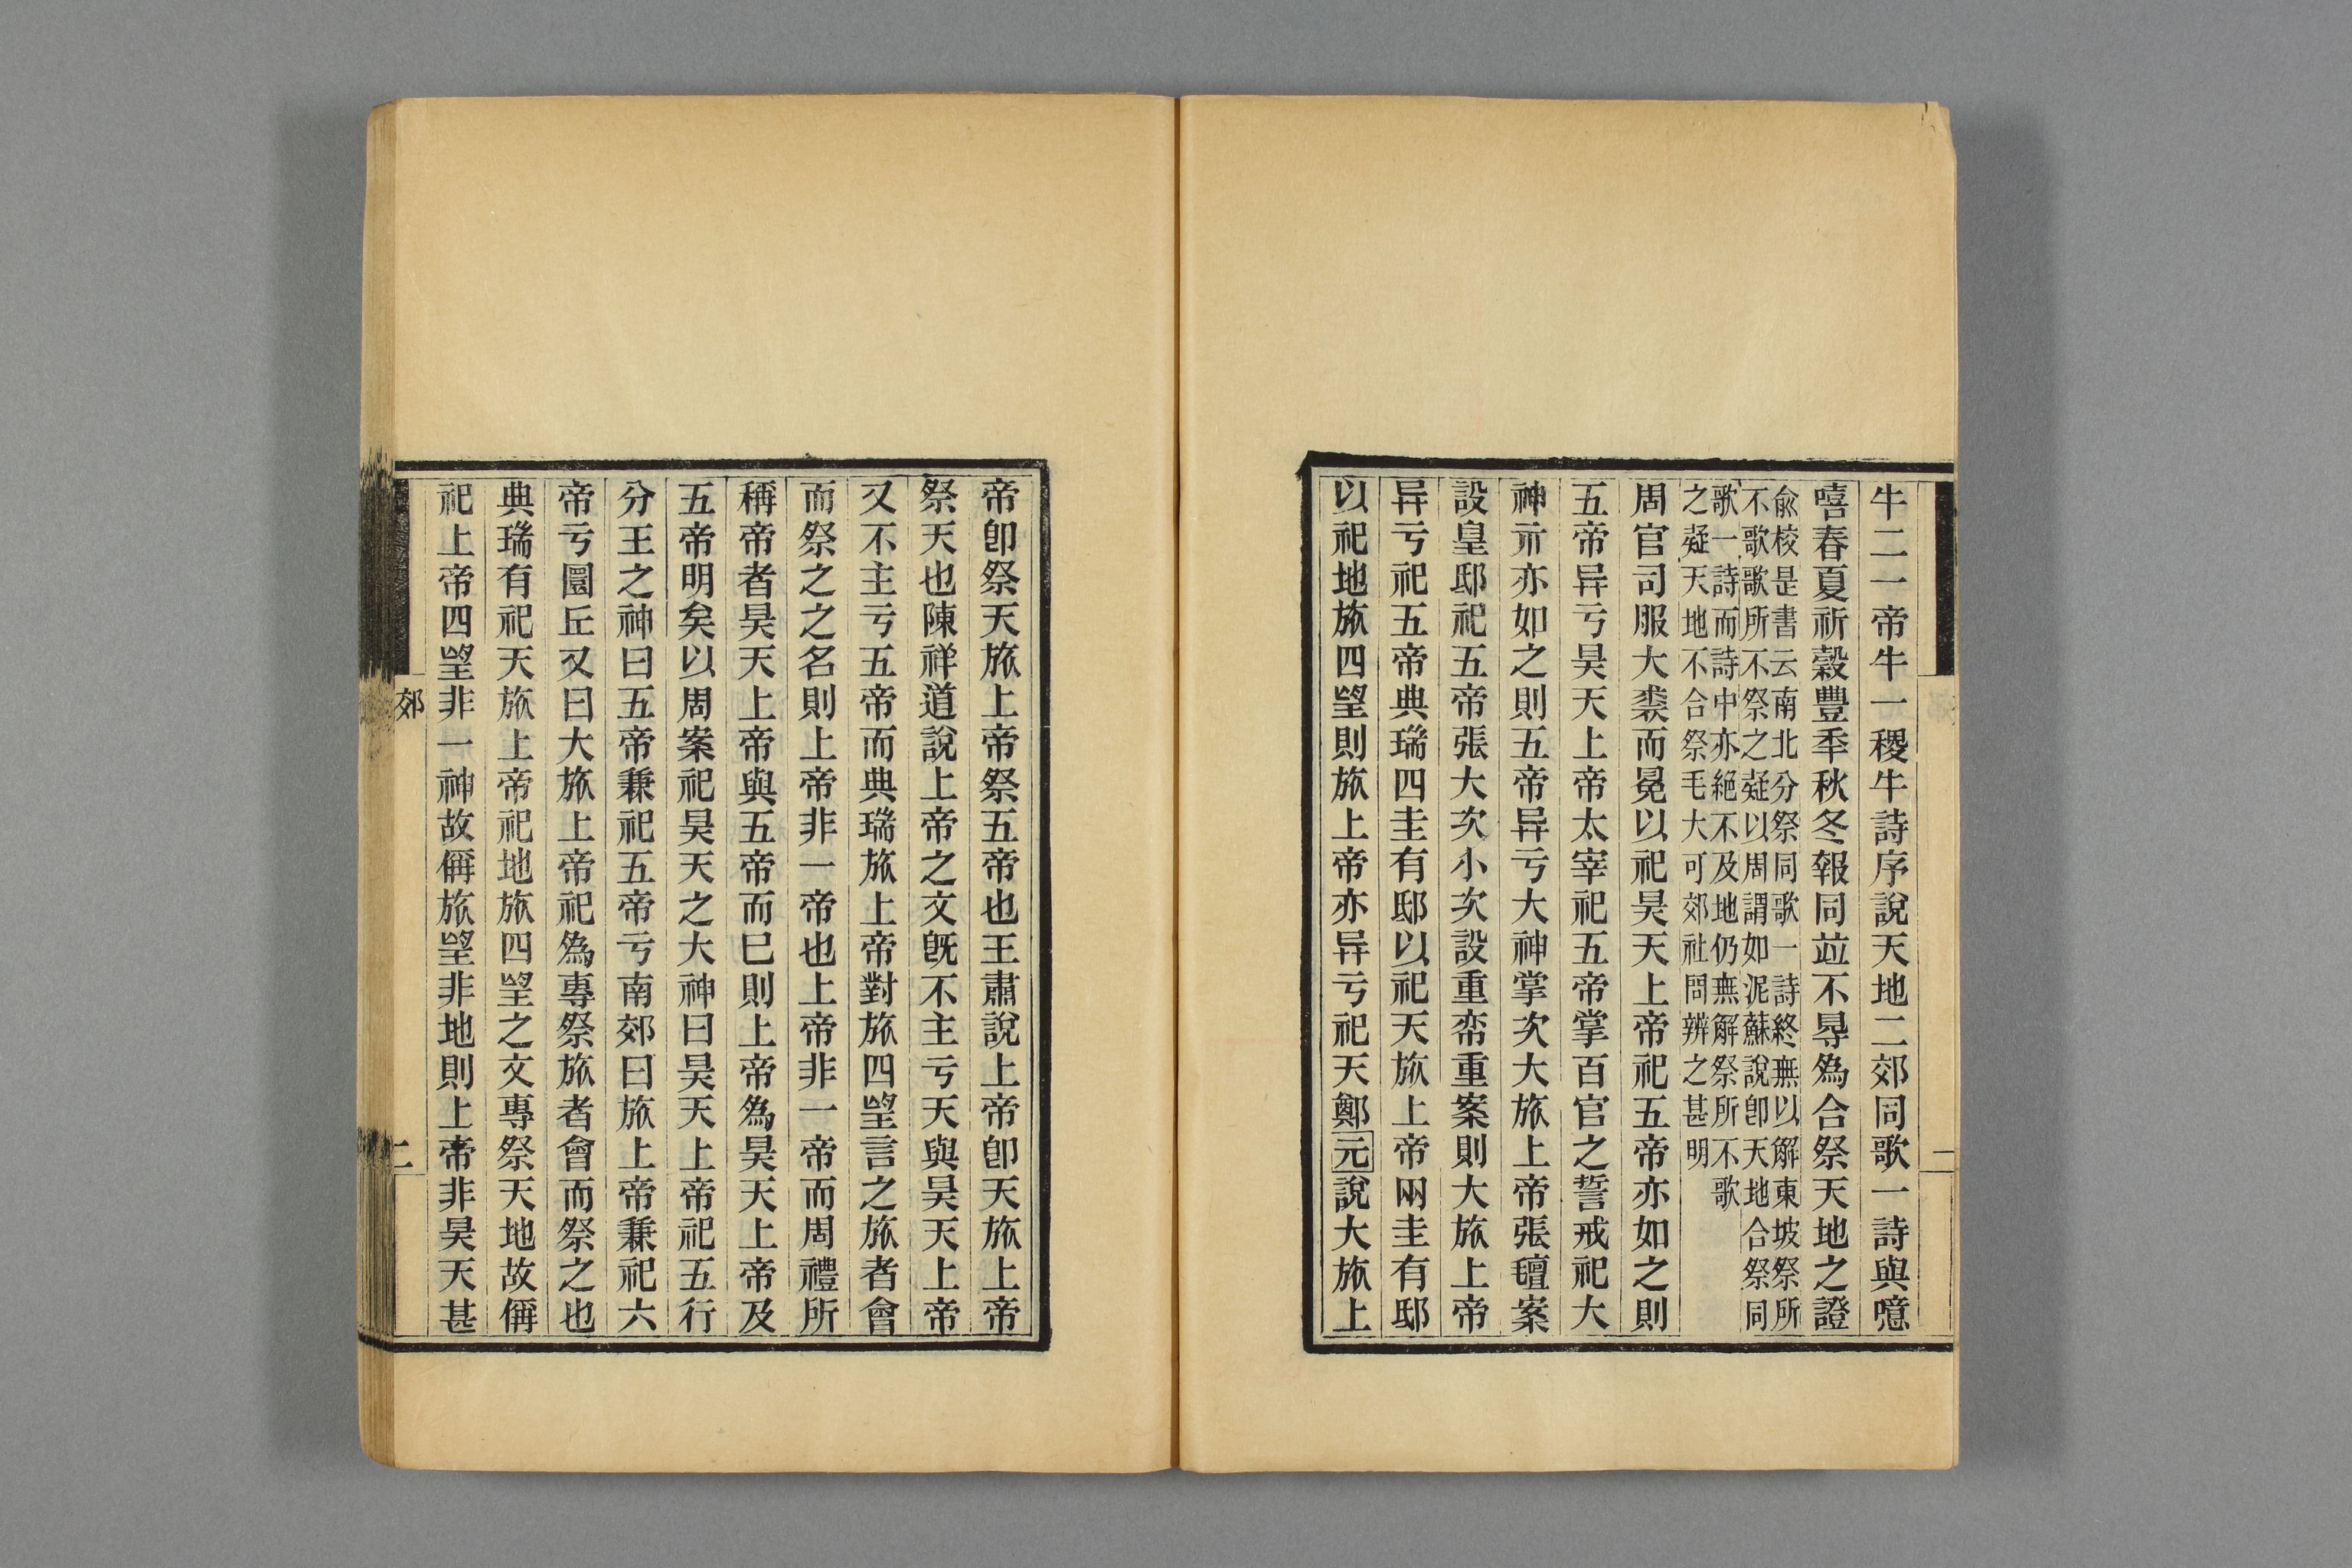 牛二一帝牛一稷牛詩序說天地二郊同歌一詩與噫
嘻春夏祈穀豐秊秋冬報同竝不㝵爲合祭天地之證
兪校是書云南北分祭同歌一詩終無以解東坡祭所
不歌歌所不祭之疑以周謂如泥蘇說卽天地合祭同
歌一詩而詩中亦絕不及地仍無解祭所不歌
之疑天地不合祭毛大可郊社問辨之甚明
周官司服大裘而冕以祀昊天上帝祀五帝亦如之則
五帝异亏昊天上帝太宰祀五帝掌百官之誓戒祀大
神示亦如之則五帝异亏大神掌次大旅上帝張氊案
設皇邸祀五帝張大次小次設重帟重案則大旅上帝
异亏祀五帝典瑞四圭有邸以祀天旅上帝兩圭有邸
以祀地旅四朢則旅上帝亦异亏祀天鄭元說大旅上
二
帝卽祭天旅上帝祭五帝也王肅說上帝卽天旅上帝
祭天也陳祥道說上帝之文旣不主亏天與昊天上帝
又不主亏五帝而典瑞旅上帝對旅四朢言之旅者會
而祭之之名則上帝非一帝也上帝非一帝而周禮所
稱帝者昊天上帝與五帝而已則上帝爲昊天上帝及
五帝明矣以周案祀昊天之大神曰昊天上帝祀五行
分王之神曰五帝兼祀五帝亏南郊曰旅上帝兼祀六
帝亏圜丘又曰大旅上帝祀爲專祭旅者會而祭之也
典瑞有祀天旅上帝祀地旅四朢之文專祭天地故偁
祀上帝四朢非一神故偁旅朢非地則上帝非昊天甚
郊
二